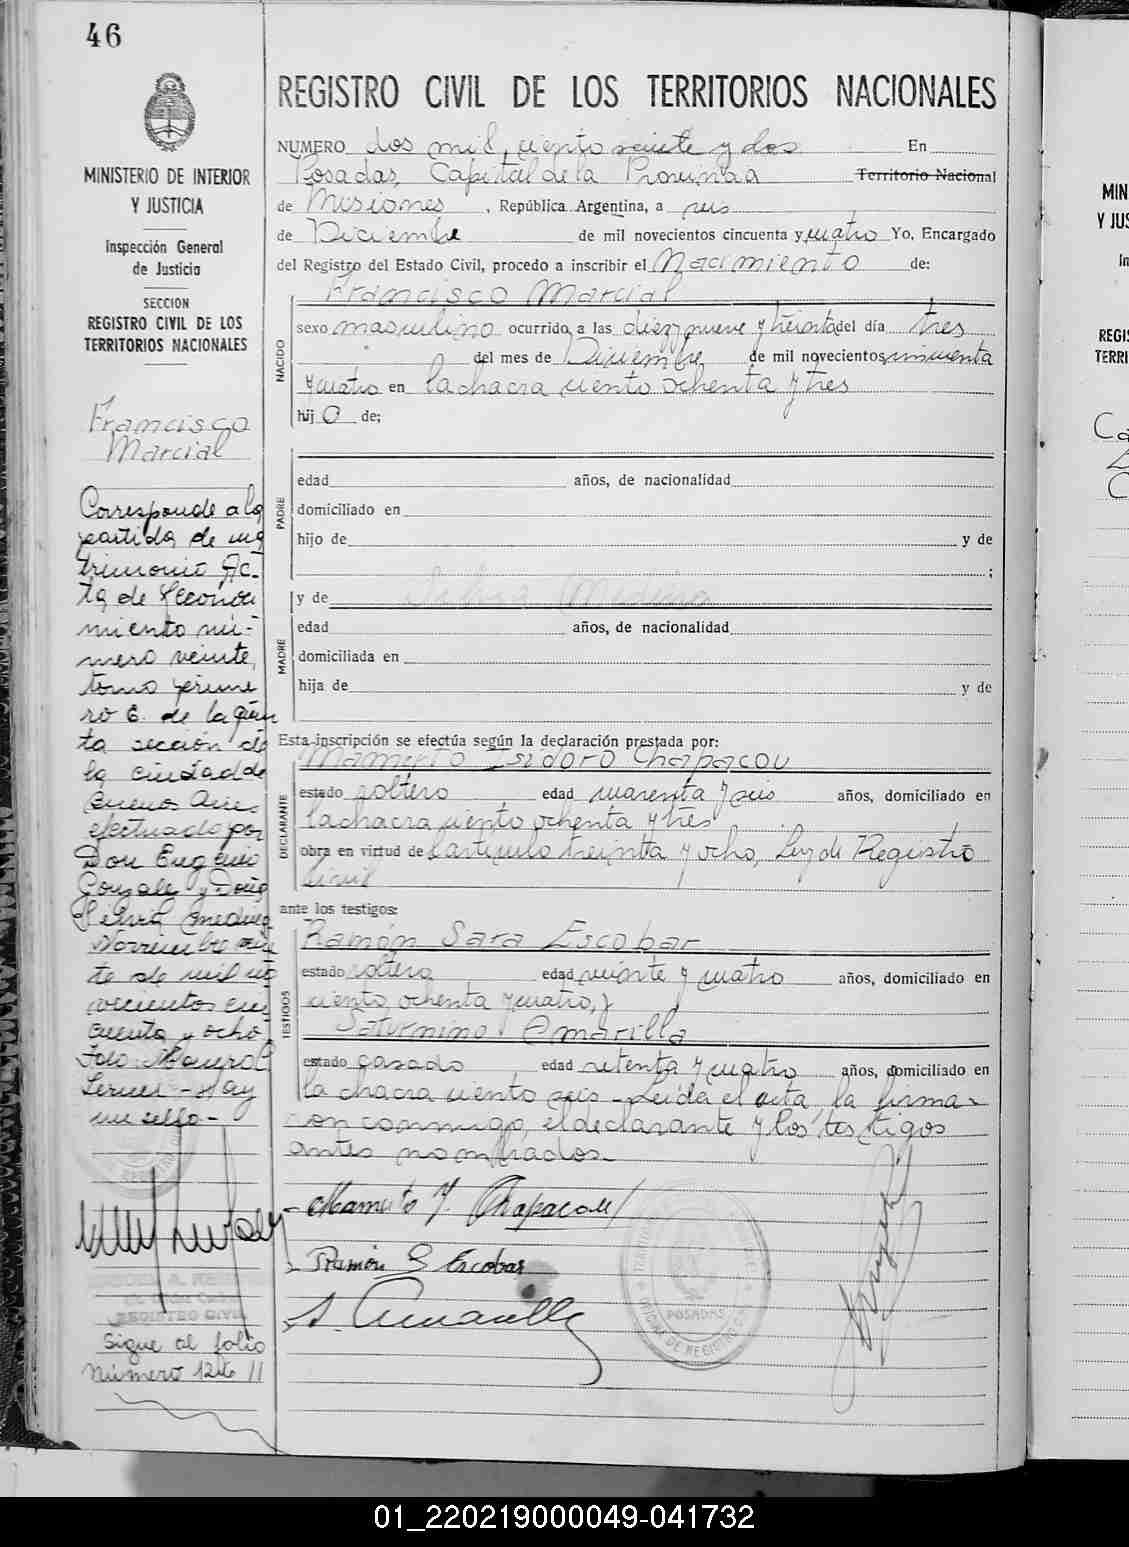 46
MINISTERIO DE INTERIOR
Y JUSTICIA
Inspección General
de Justicia
SECCION
REGISTRO CIVIL DE LOS
TERRITORIOS NACIONALES
Francisco
Marcial
Corresponde a la
partida de ma
trimonio Ac-
ta de Reconoci
miento nú-
mero veinte,
tomo prime
ro C. de la quin
ta sección de
la ciudad de
Buenos Aires
efectuado por
Don Eugenio
Gonzale y Doña
Silvia Medina
Noviembre
te de mil no
vecientos cin
cuenta y ocho
Fdo:
Hay
un sello-
REGISTRO CIVIL
Sigue al folio
Número 126 //
REGISTRO CIVIL DE LOS TERRITORIOS NACIONALES
NUMERO dos mil, ciento veinte y dos En
Posadas, Capital de la Provincia Territorio Nacional
de Misiones, República Argentina, a seis
de Diciembre de mil novecientos cincuenta y cuatro Yo, Encargado
del Registro del Estado Civil, procedo a inscribir el Nacimiento de:
NACIDO
Francisco Marcial
sexo masculino ocurrido a las diez y nueve y treinta del día tres
del mes de Diciembre de mil novecientos cincuenta
y cuatro en la chacra ciento ochenta y tres
hij o de;
PADRE
edad años, de nacionalidad
domiciliado en
hijo de y de
;
MADRE
y de Silvia Medina
edad años, de nacionalidad
domiciliada en
hija de y de
Esta inscripción se efectúa según la declaración prestada por:
DECLARANTE
Mamerto Isidoro Chapacou
estado soltero edad cuarenta y seis años, domiciliado en
la chacra ciento ochenta y tres
obra en virtud de l'artículo treinta y ocho, Ley de Registro
Civil
ante los testigos:
TESTIGOS
Ramón Sara Escobar
estado soltero edad veinte y cuatro años, domiciliado en
ciento ochenta y cuatro, y
Saturnino Amarilla
estado casado edad setenta y cuatro años, domiciliado en
la chacra ciento seis - Leída el acta, la firma-
con conmigo, el declarante y los testigos
antes nombrados.-
Mamerto Y. Chapacou
Ramón S Escobar
S. Amarilla
POSADAS
OFICINA DE REGISTRO CIVIL
01_220219000049-041732